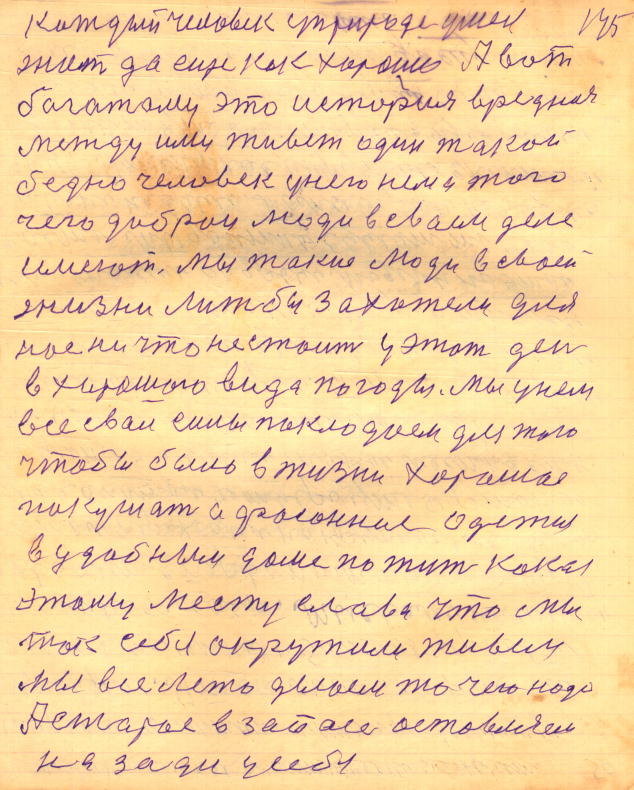 каждый человек у природе умел 175
жит да еще как хорошо А вот
багатому это история вредная
между ими живет один такой
бедно человек у него нема того
чего доброи люди в сваем деле
имеют. мы такие люди в своей
жизни лиж бы захотели для
нас ни что нестоит у этот ден
в хорошого вида погоды. мы у нем
все сваи силы покладаем для того
чтобы было в жизни хорошае
покушат а фасонние одежи
в удобным доме пожит какая
этому месту слава что мы
так себя окружили живем
мы все лето делаем то чего надо
А старое в запасе оставляем
на зади у себя